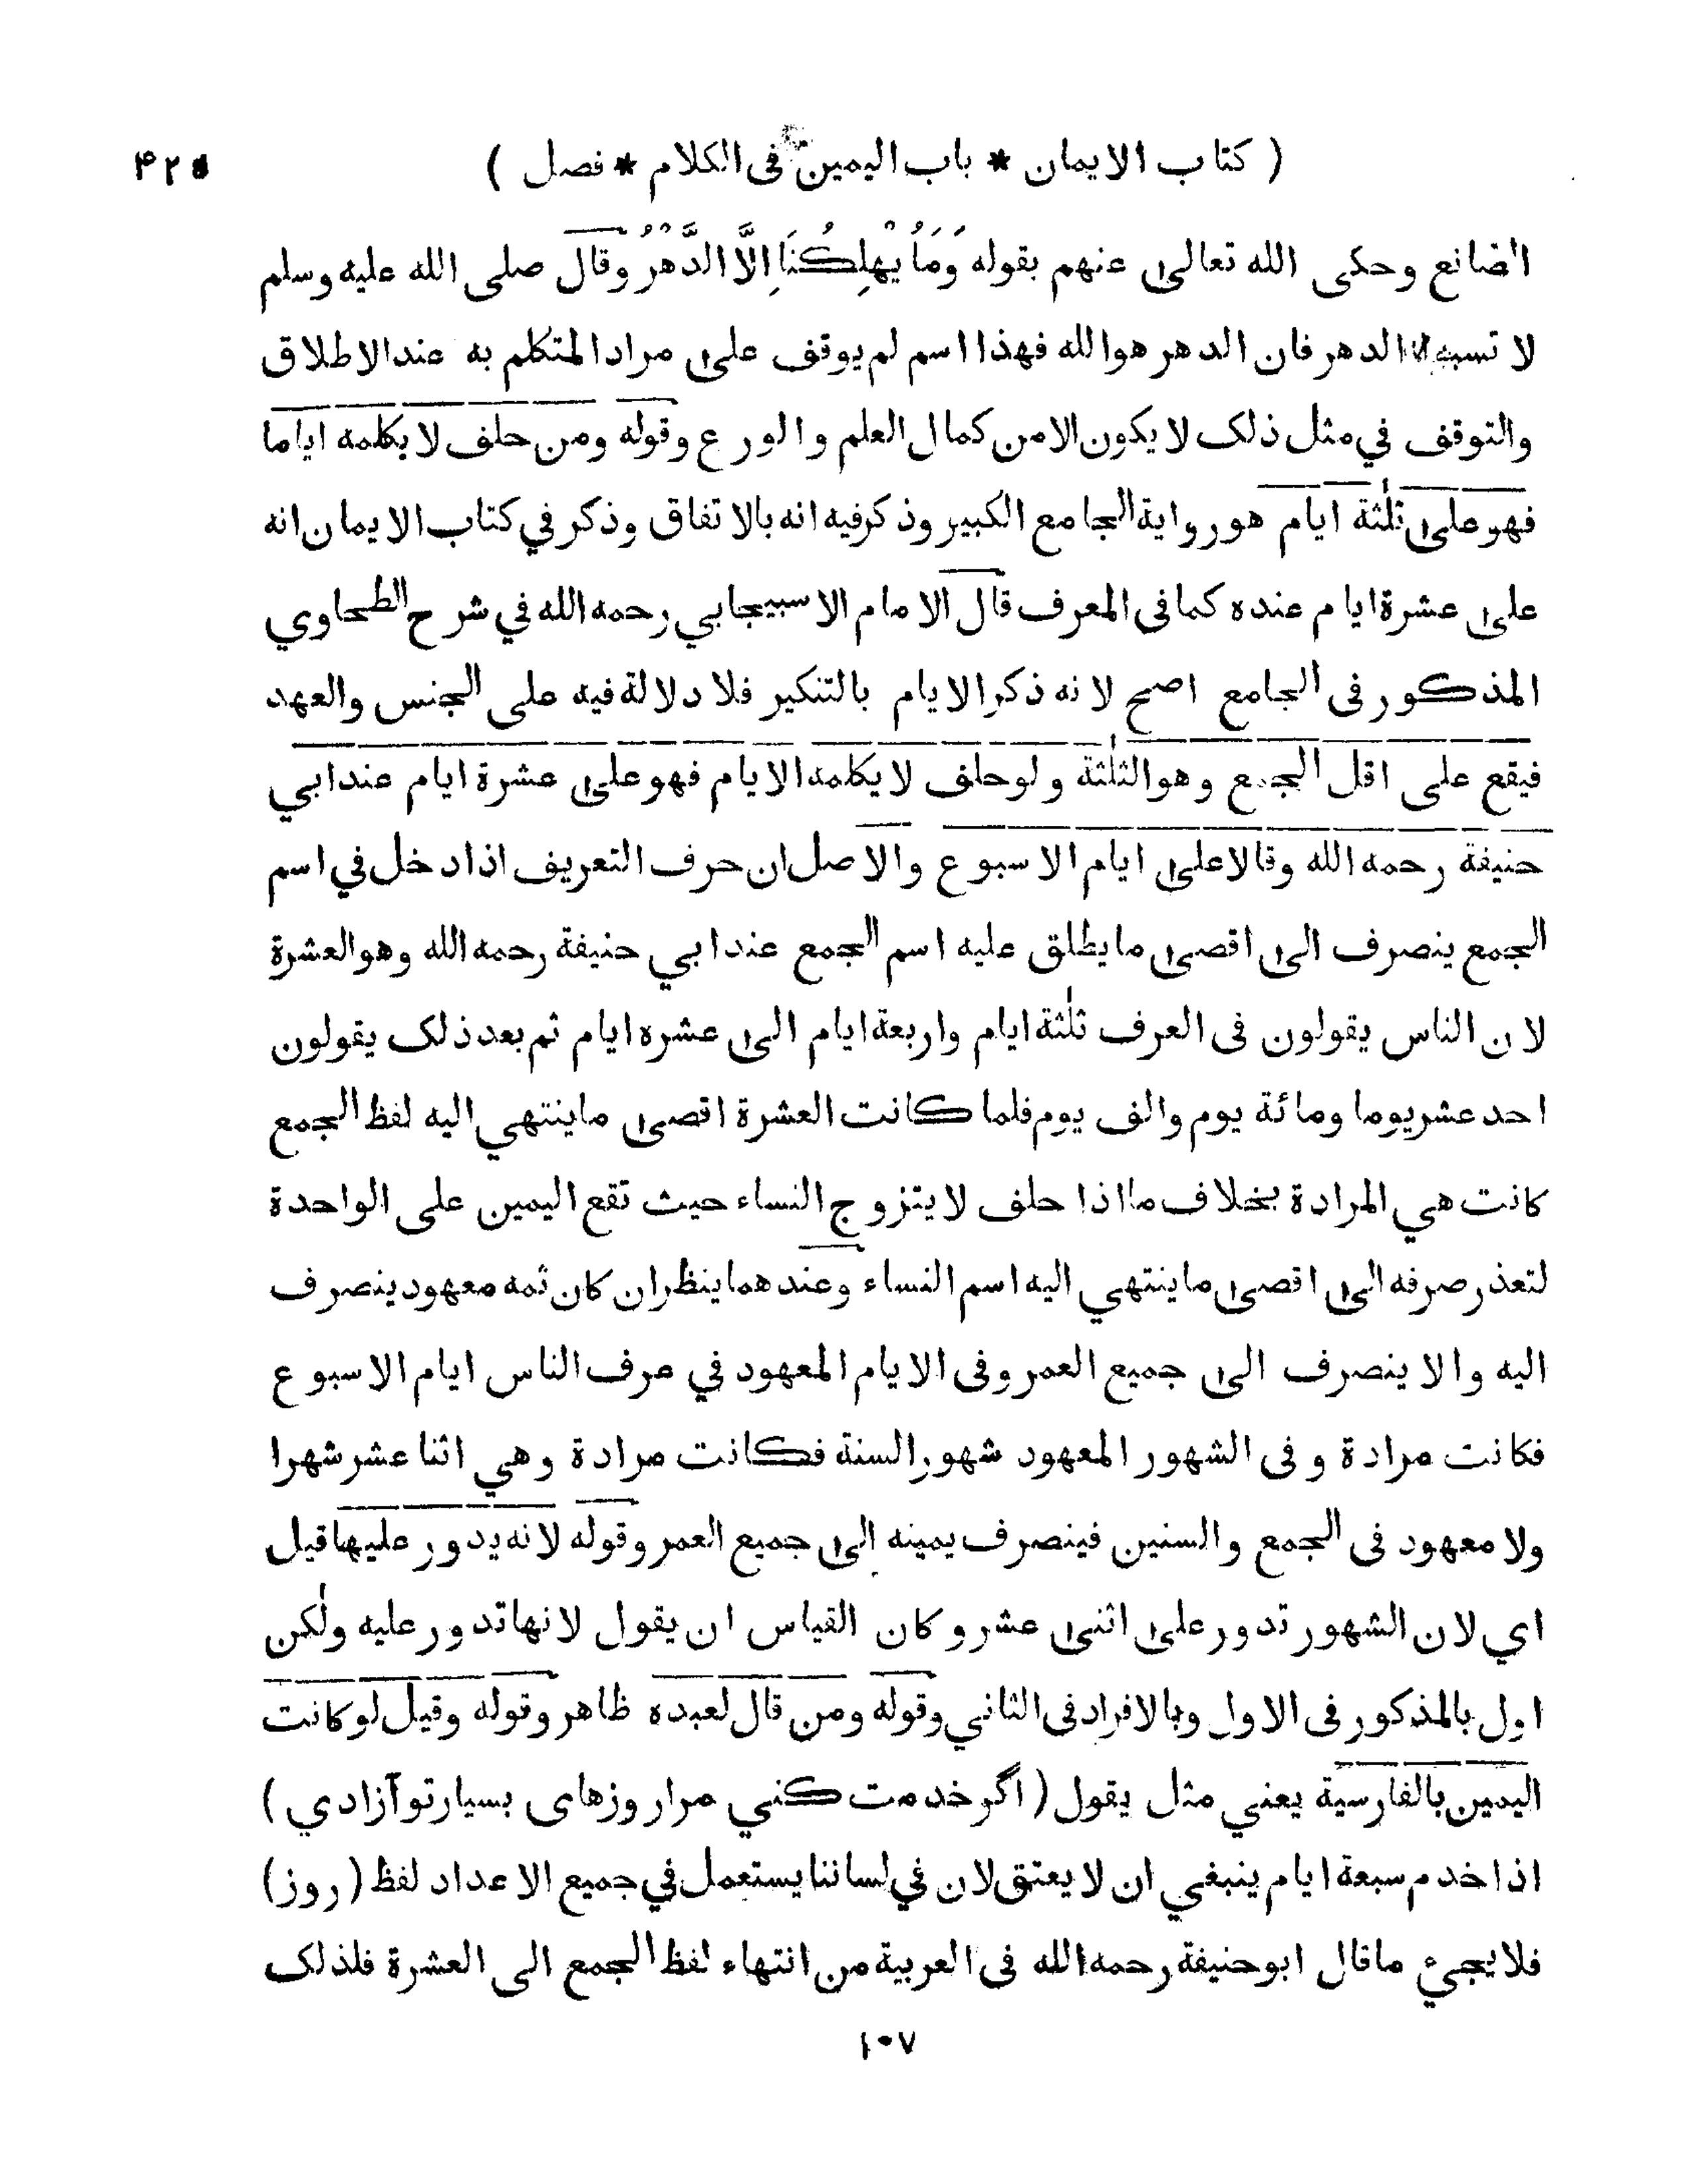 ( كتاب الايمان * باب اليمين في الكلام * فصل ) ۴۲۵
الصانع وحكى الله تعالى عنهم بقوله وَمَا يُهْلِكُنَا إِلَّا الدَّهْرُ وقال صلى الله عليه وسلم
لا تسبوا الدهر فان الدهر هو الله فهذا اسم لم يوقف على مراد المتكلم به عند الاطلاق
والتوقف في مثل ذلك لا يكون الا من كمال العلم والورع وقوله ومن حلف لا يكلمه اياما
فهو على ثلٰثة ايام هو رواية الجامع الكبير وذكر فيه انه بالاتفاق وذكر في كتاب الايمان انه
على عشرة ايام عنده كما في المعرف قال الامام الاسبيجابي رحمه الله في شرح الطحاوي
المذكور في الجامع اصح لانه ذكر الايام بالتنكير فلا دلالة فيه على الجنس والعهد
فيقع على اقل الجمع وهو الثلٰثة ولو حلف لا يكلمه الايام فهو على عشرة ايام عند ابي
حنيفة رحمه الله وقالا على ايام الاسبوع والاصل ان حرف التعريف اذا دخل في اسم
الجمع ينصرف الى اقصى ما يطلق عليه اسم الجمع عند ابي حنيفة رحمه الله وهو العشرة
لان الناس يقولون في العرف ثلٰثة ايام واربعة ايام الى عشره ايام ثم بعد ذلك يقولون
احد عشر يوما ومائة يوم والف يوم فلما كانت العشرة اقصى ما ينتهي اليه لفظ الجمع
كانت هي المرادة بخلاف ما اذا حلف لا يتزوج النساء حيث تقع اليمين على الواحدة
لتعذر صرفه الى اقصى ما ينتهي اليه اسم النساء وعندهما ينظر ان كان ثمه معهود ينصرف
اليه والا ينصرف الى جميع العمر وفى الايام المعهود في عرف الناس ايام الاسبوع
فكانت مرادة وفى الشهور المعهود شهور السنة فكانت مرادة وهي اثنا عشر شهرا
ولا معهود في الجمع والسنين فينصرف يمينه الى جميع العمر وقوله لانه يدور عليها قيل
اي لان الشهور تدور على اثنى عشر وكان القياس ان يقول لانها تدور عليه ولٰكن
اول بالمذكور في الاول وبالافراد في الثاني وقوله ومن قال لعبده ظاهر وقوله وقيل لو كانت
اليمين بالفارسية يعني مثل يقول ( اگر خدمت كني مرا روزهاى بسيار تو آزادي )
اذا خدم سبعة ايام ينبغي ان لا يعتق لان في لساننا يستعمل في جميع الاعداد لفظ ( روز )
فلا يجيء ما قال ابو حنيفة رحمه الله في العربية من انتهاء لفظ الجمع الى العشرة فلذلك
١٠٧